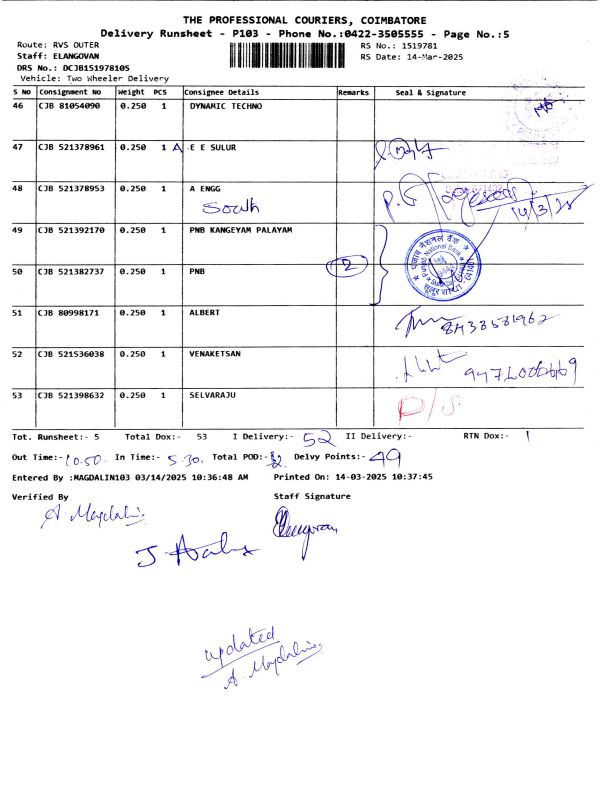 THE PROFESSIONAL COURIERS, COIMBATORE
Delivery Runsheet - P103 - Phone No.:0422-3505555 - Page No.:5
Route: RVS OUTER RS No.: 1519781
Staff: ELANGOVAN RS Date: 14-Mar-2025
DRS No.: DCJB151978105
Vehicle: Two Wheeler Delivery
S NO Consignment No Weight PCS Consignee Details Remarks Seal & Signature
46 CJB 81054090 0.250 1 DYNAMIC TECHNO
47 CJB 521378961 0.250 1 A E E SULUR
48 CJB 521378953 0.250 1 A ENGG
South
14/3/25
49 CJB 521392170 0.250 1 PNB KANGEYAM PALAYAM
50 CJB 521382737 0.250 1 PNB 2
पंजाब नैशनल बैंक
Punjab National Bank
51 CJB 80998171 0.250 1 ALBERT
8438581962
52 CJB 521536038 0.250 1 VENAKETSAN
53 CJB 521398632 0.250 1 SELVARAJU
P/S.
Tot. Runsheet:- 5 Total Dox:- 53 I Delivery:- 52 II Delivery:- RTN Dox:- 1
Out Time:- 10.50. In Time:- 5.30. Total POD:- Delvy Points:- 49
Entered By :MAGDALIN103 03/14/2025 10:36:48 AM Printed On: 14-03-2025 10:37:45
Verified By Staff Signature
A Magdalin
Elangovan
updated
A. Magdalin